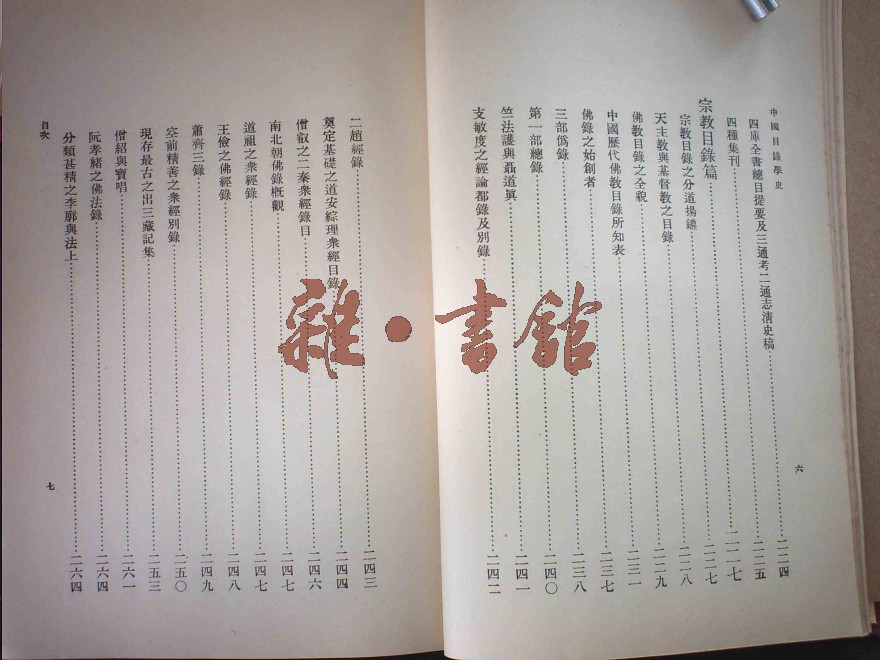 中國目錄學史
四庫全書總目提要及三通考二通志清史稿……二二四
四種集刊……二二五
宗教目錄篇……二二七
宗教目錄之分道揚鑣……二二七
天主教與基督教之目錄……二二八
佛教目錄之全貌……二二九
中國歷代佛教目錄所知表……二三一
佛錄之始創者……二三七
三部僞錄……二三八
第一部總錄……二四〇
竺法護與聶道眞……二四一
支敏度之經論都錄及別錄……二四二
六
二趙經錄……二四三
奠定基礎之道安綜理衆經目錄……二四四
僧叡之二秦衆經錄目……二四六
南北朝佛錄概觀……二四七
道祖之衆經錄……二四七
王儉之佛經錄……二四八
蕭齊三錄……二四九
空前精善之衆經別錄……二五〇
現存最古之出三藏記集……二五三
僧紹與寶唱……二六一
阮孝緒之佛法錄……二六四
分類甚精之李廓與法上……二六四
目次
七
雜·書館